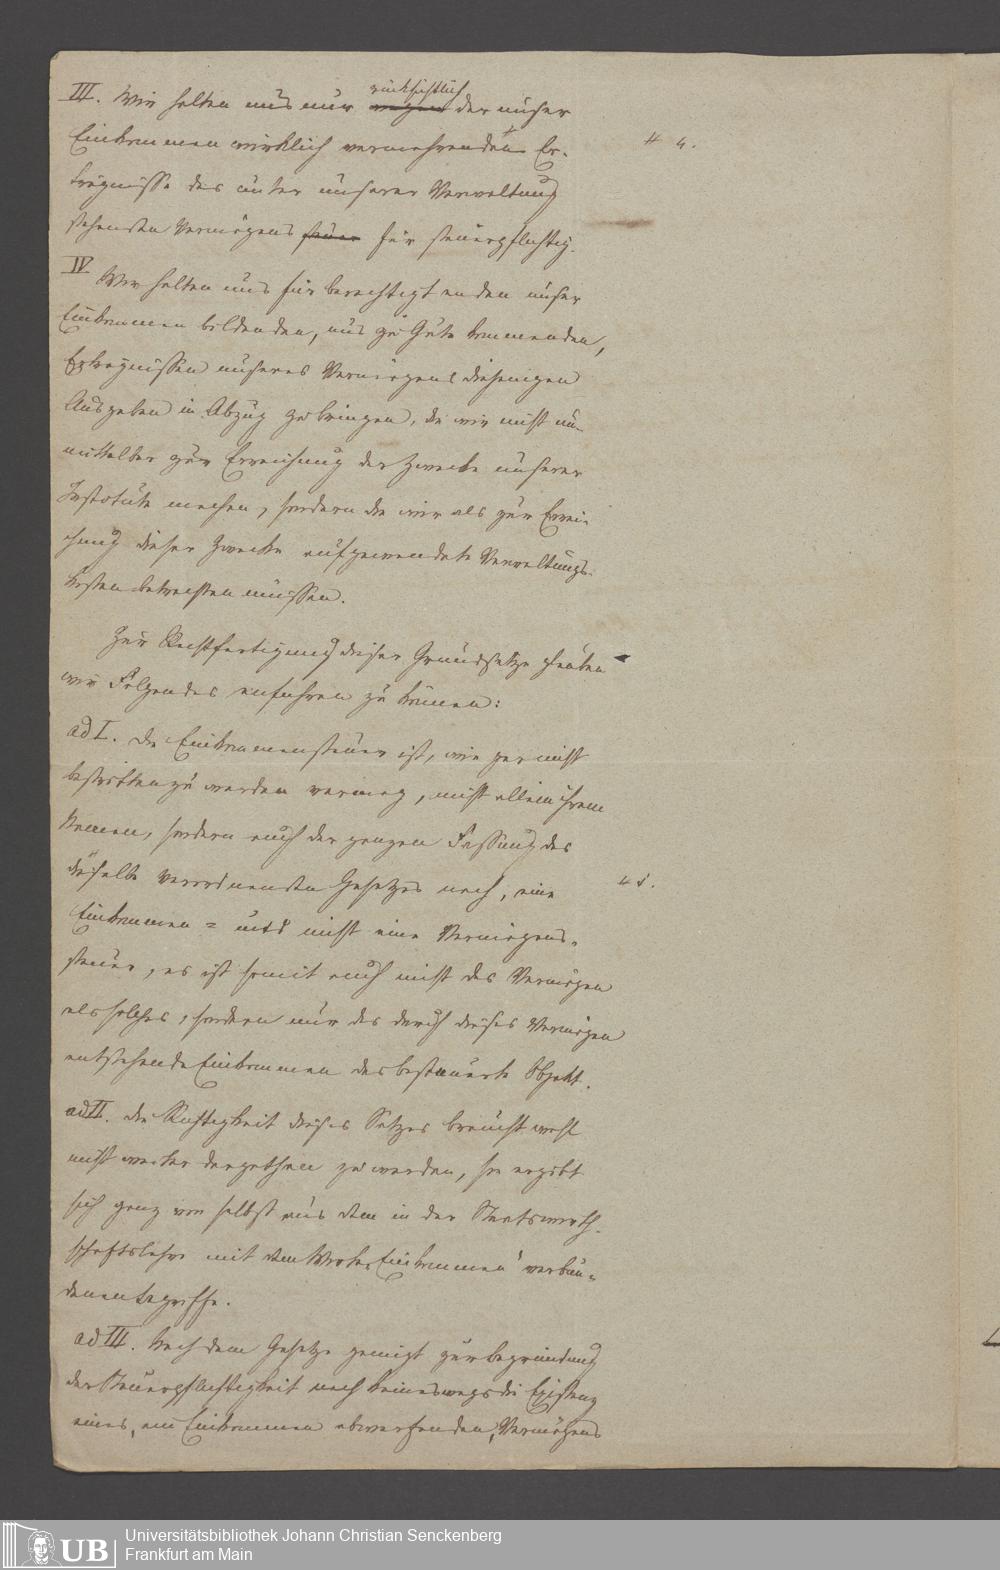 III. Wir halten uns nur rücksichtlich wegen der unser
Einkommen wirklich vermehrenden Er-
trägnisse des unter unserer Verwaltung
stehenden Vermögens steuer für steuerpflichtig.
IV Wir halten uns für berechtigt an den unser
Einkommen bildenden, uns zu Gute kommenden,
Erträgnissen unseres Vermögens diejenigen
Ausgaben in Abzug zu bringen, die wir nicht un-
mittelbar zur Erreichung der Zwecke unserer
Institute machen, sondern die wir als zur Errei-
chung dieser Zwecke aufgewendete Verwaltungs-
kosten betrachten müssen.
Zur Rechtfertigung dieser Grundsätze glauben
wir Folgendes anführen zu können:
ad I. Die Einkommensteuer ist, wie gar nicht
bestritten zu werden vermag, nicht allein ihrem
Namen, sondern auch der ganzen Fassung des
dieselbe verordnenden Gesetzes nach, eine
Einkommen = und nicht eine Vermögens-
steuer, es ist somit auch nicht das Vermögen
als solches, sondern nur das durch dieses Vermögen
entstehende Einkommen das besteuerte Objekt.
ad II. Die Richtigkeit dieses Satzes braucht wohl
nicht weiter dargethan zu werden, sie ergibt
sich ganz von selbst aus dem in der Staatswirth-
schaftslehre mit dem Worte "Einkommen" verbun-
denen Begriffe.
ad III. Nach dem Gesetze genügt zur Begründung
der Steuerpflichtigkeit noch keineswegs die Existenz
eines, ein Einkommen abwerfenden, Vermögens
4.
5.
UB
Universitätsbibliothek Johann Christian Senckenberg
Frankfurt am Main